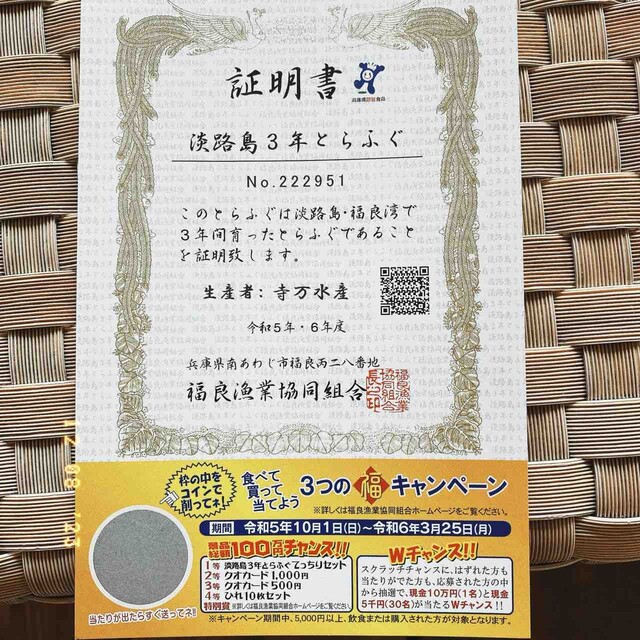 証明書
兵庫県認証食品
淡路島3年とらふぐ
No.222951
このとらふぐは淡路島・福良湾で
3年間育ったとらふぐであること
を証明致します。
生産者：寺万水産
令和5年・6年度
兵庫県南あわじ市福良丙二八番地
福良漁業協同組合
福良漁業
協同組合
長之印
枠の中を
コインで
削ってネ!
食べて
買って
当てよう
3つの福キャンペーン
※詳しくは福良漁業協同組合ホームページをご覧ください。
期間 令和5年10月1日(日)～令和6年3月25日(月)
景品総額100万円チャンス!!
1等 淡路島3年とらふぐてっちりセット
2等 クオカード1,000円
3等 クオカード500円
4等 ひれ10枚セット
特別賞 ※詳しくは福良漁業協同組合ホームページをご覧ください。
当たりが出たらすぐ送ってネ!!
Wチャンス!!
スクラッチチャンスに、はずれた方も
当たりがでた方も、応募された方の中
から抽選で、現金10万円(1名)と現金
5千円(30名)が当たるWチャンス!!
※キャンペーン期間中、5,000円以上、飲食または購入された方が対象となります。
12 08 23